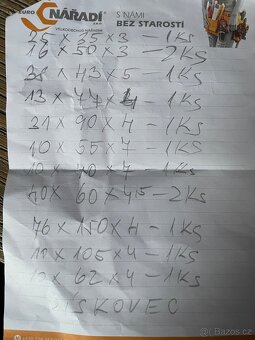 EURO
NÁŘADÍ
VELKOOBCHOD NÁŘADÍM
S NÁMI
BEZ STAROSTÍ
25 × 3 – 1KS
76 × 50 × 3 – 2KS
31 × 43 × 5 – 1KS
13 × 1KS
31 × 90 × 4 – 1KS
10 × 55 × 7 – 1KS
10 × 40 × 7 – 1KS
40 × 60 × 4,5 – 2KS
76 × 150 × 4 – 1KS
× 105 × 4 – 1KS
× 62 × 4 – 1KS
PÍSKOVEC
bazos.cz